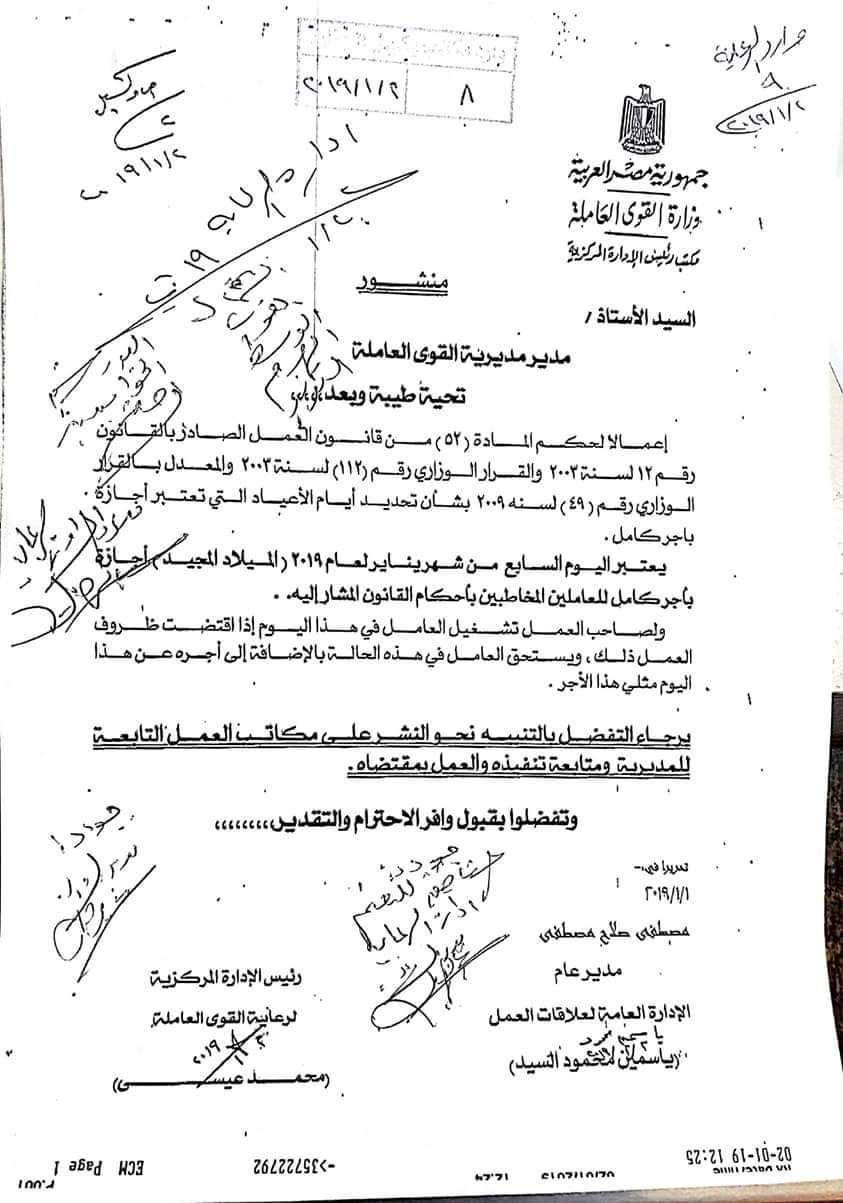 ٨
٢٠١٩/١/٢
٢٠١٩/١/٢
جمهورية مصر العربية
وزارة القوى العاملة
مكتب رئيس الإدارة المركزية
منشور
السيد الأستاذ /
مدير مديرية القوى العاملة
تحية طيبة وبعد،،،،
إعمالا لحكم المادة (٥٢) من قانون العمل الصادر بالقانون
رقم ١٢ لسنة ٢٠٠٣ والقرار الوزاري رقم (١١٢) لسنة ٢٠٠٣ والمعدل بالقرار
الوزاري رقم (٤٩) لسنه ٢٠٠٩ بشأن تحديد أيام الأعياد التي تعتبر أجازة
باجر كامل .
يعتبر اليوم السابع من شهر يناير لعام ٢٠١٩ ( الميلاد المجيد ) أجازة
بأجر كامل للعاملين المخاطبين بأحكام القانون المشار إليه .
ولصاحب العمل تشغيل العامل في هذا اليوم إذا اقتضت ظروف
العمل ذلك ، ويستحق العامل في هذه الحالة بالإضافة إلى أجره عن هذا
اليوم مثلي هذا الأجر .
برجاء التفضل بالتنبيه نحو النشر على مكاتب العمل التابعة
للمديرية ومتابعة تنفيذه والعمل بمقتضاه .
وتفضلوا بقبول وافر الاحترام والتقدير،،،،،،،،
تحريرا في :-
٢٠١٩/١/١
مصطفى صلاح مصطفى
مدير عام
الإدارة العامة لعلاقات العمل
(ياسمين محمود السيد)
رئيس الإدارة المركزية
لرعاية القوى العاملة
(محمد عيسى)
02-01-19 12:25
->35722792
ECM Page 1
P.001